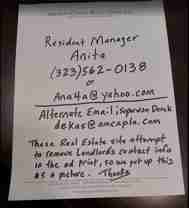 Resident Manager
Anita
(323)562-0138
or
Ana4a@yahoo.com
Alternate Email: Supervisor Derek
dekas@omcapla.com
These Real Estate site attempt
to remove Landlords contact info
in the ad print, so we put up this
as a picture. Thanks